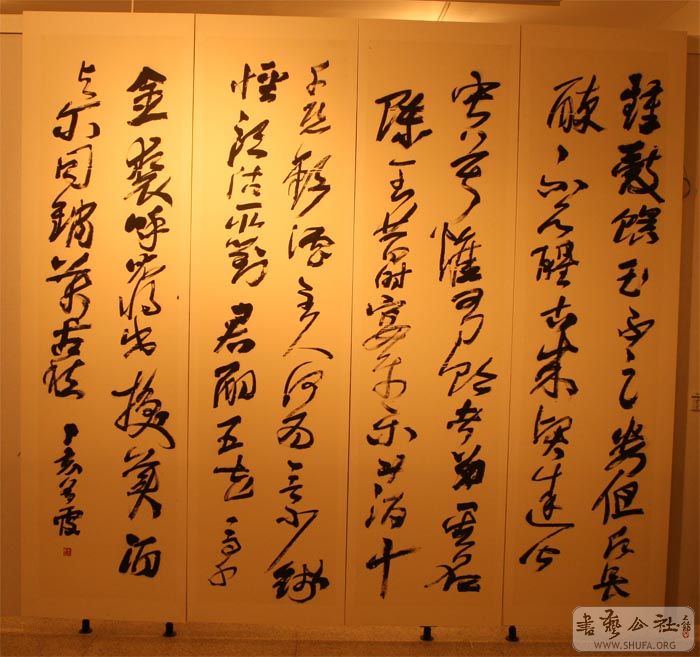 鐘鼓饌玉不足貴但願長
醉不願醒古来賢達皆
寂寞惟有飲者留其名
陳王昔時宴平樂斗酒十
千恣歡謔主人何為言少錢
徑須沽取對君酌五花馬千
金裘呼兒將出換美酒
与尔同銷萬古愁 丁亥 霞
書藝公社
WWW.SHUFA.ORG